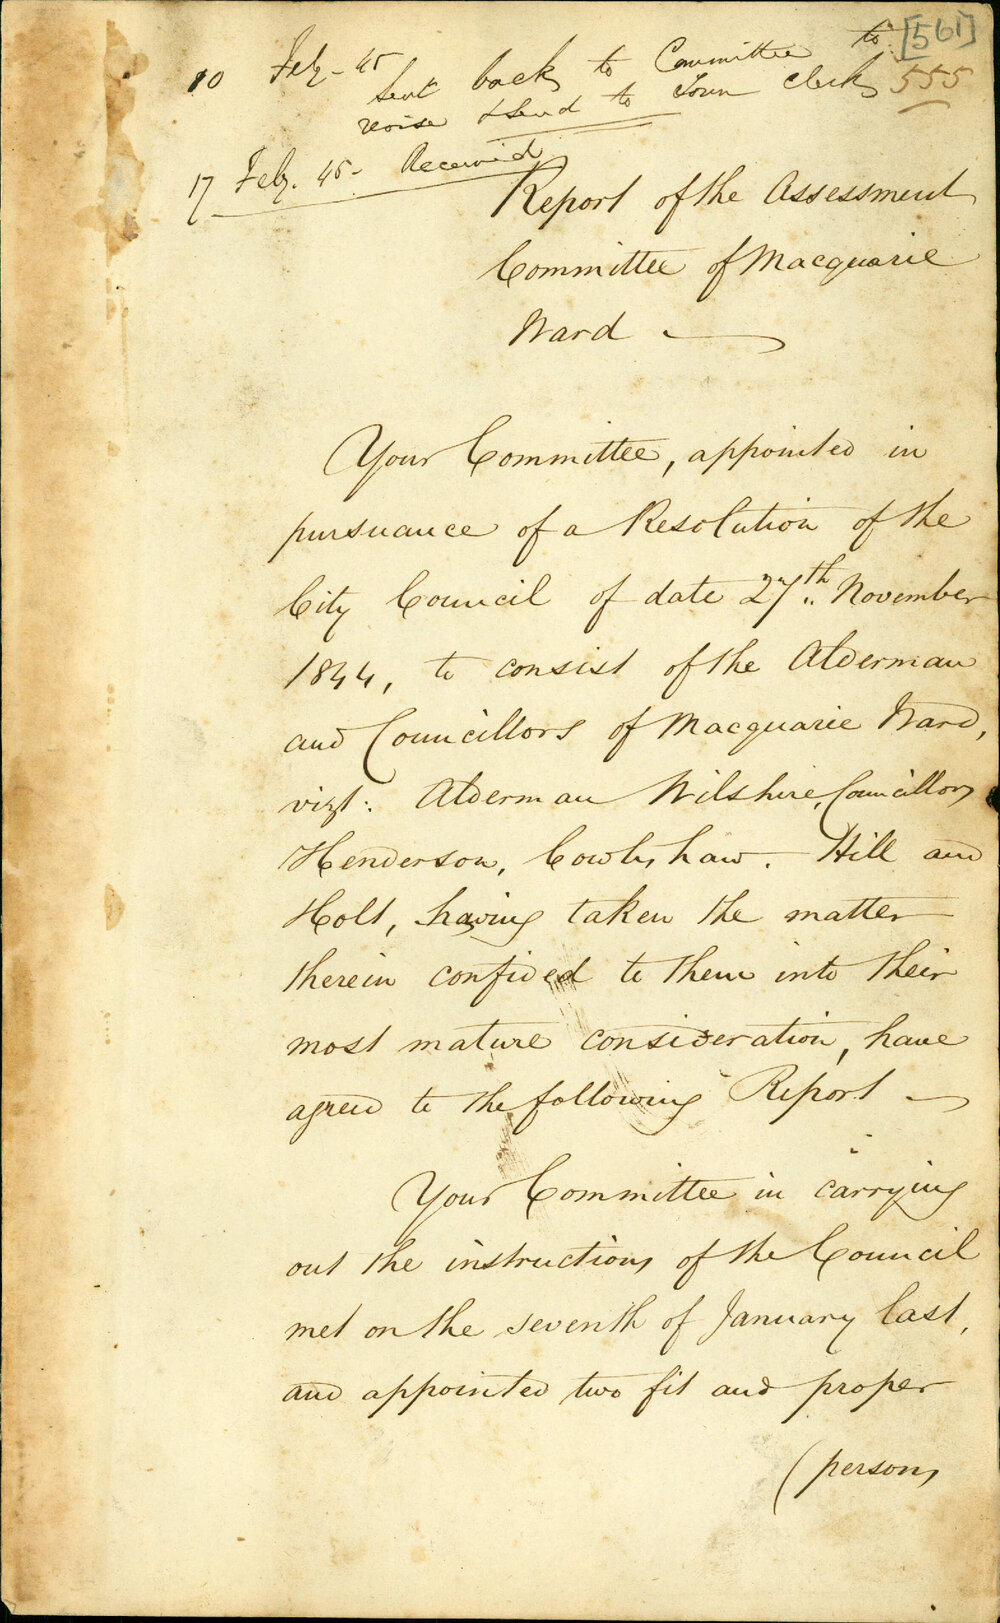 [561]
555
10 Feby - 45
Sent back to Committee to
revise & send to Town Clerk
17 Feby. 45 - Received
Report of the Assessment
Committee of Macquarie
Ward
Your Committee, appointed in
pursuance of a Resolution of the
City Council of date 27th November
1844, to consist of the Alderman
and Councillors of Macquarie Ward,
vizt: Alderman Wilshire, Councillors
Henderson, Cowlishaw. Hill and
Holt, having taken the matter
therein confided to them into their
most mature consideration, have
agreed to the following Report
Your Committee in carrying
out the instructions of the Council
met on the seventh of January last,
and appointed two fit and proper
(persons